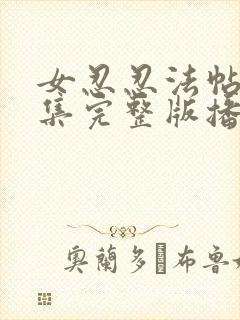 女忍忍法帖
集完整版播
奥蘭多 布鲁